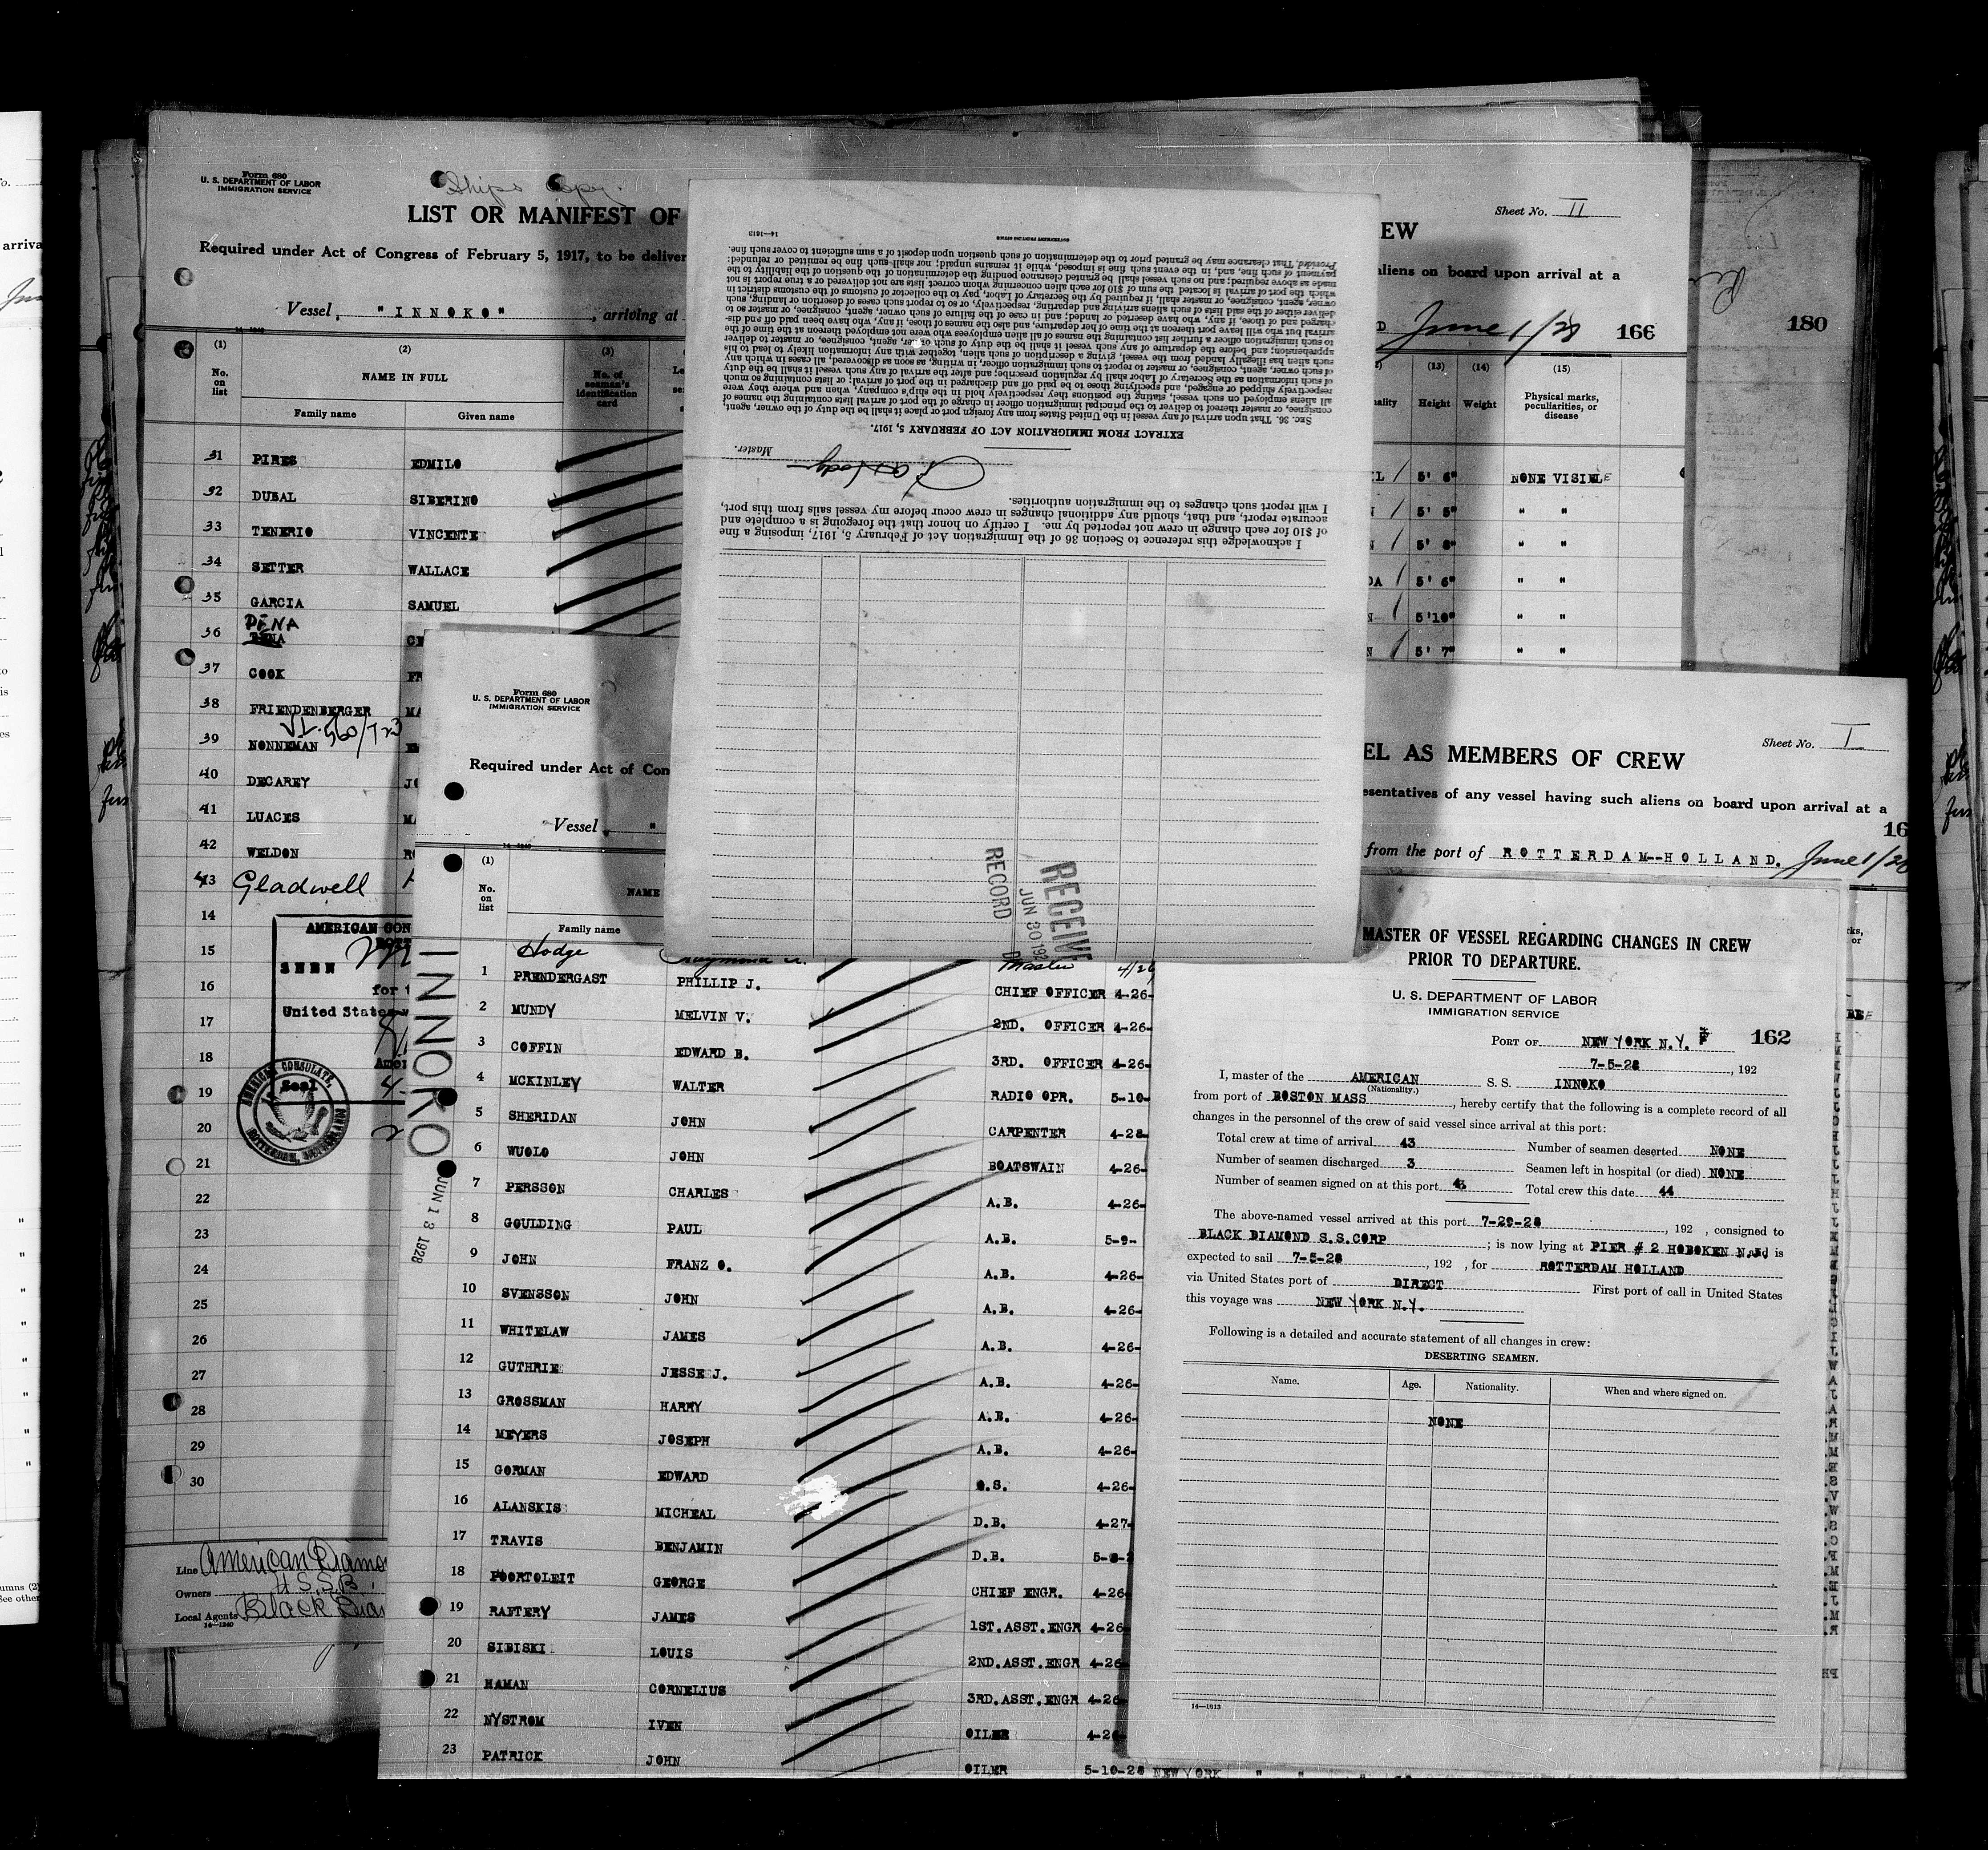 Form 680
U. S. DEPARTMENT OF LABOR
IMMIGRATION SERVICE
Ships Copy.
LIST OR MANIFEST OF
Required under Act of Congress of February 5, 1917, to be deliver
Vessel "INNOKO", arriving at
14-1240
(1) (2) (3)
No. on list
NAME IN FULL
No. of seaman's identification card
Family name Given name
31 PIRES EDMILO
32 DUBAL SIBERINO
33 TENERIO VINCENTE
34 SETTER WALLACE
35 GARCIA SAMUEL
36 PENA
37 COOK
38 FRIENDENBERGER
39 NONNEMAN
40 DECAREY
41 LUACES
42 WELDON
43 Gladwell
14
15
16
17
18
19
20
21
22
23
24
25
26
27
28
29
30
AMERICAN CON
SEEN
for t
United States
AMERICAN CONSULATE,
Seal
ROTTERDAM, NETHERLANDS
Line American Diamo
Owners U.S.S.B.
Local Agents Black Diam
14-1240
Sheet No. II
EW
aliens on board upon arrival at a
D June 1/28 166
(13) (14) (15)
ality Height Weight Physical marks, peculiarities, or disease
5' 6" NONE VISIBLE
5' 5" " "
5' 8" " "
DA 5' 6" " "
5'10" " "
5' 7" " "
180
14-1613
GOVERNMENT PRINTING OFFICE
I acknowledge this reference to Section 36 of the Immigration Act of February 5, 1917, imposing a fine
of $10 for each change in crew not reported by me. I certify on honor that the foregoing is a complete and
accurate report, and that, should any additional changes in crew occur before my vessel sails from this port,
I will report such changes to the immigration authorities.
Master.
EXTRACT FROM IMMIGRATION ACT OF FEBRUARY 5, 1917.
SEC. 36. That upon arrival of any vessel in the United States from any foreign port or place it shall be the duty of the owner, agent,
consignee, or master thereof to deliver to the principal immigration officer in charge of the port of arrival lists containing the names of
all aliens employed on such vessel, stating the positions they respectively hold in the ship's company, when and where they were
respectively shipped or engaged, and specifying those to be paid off and discharged in the port of arrival; or lists containing so much
of such information as the Secretary of Labor shall by regulation prescribe; and after the arrival of any such vessel it shall be the duty
of such owner, agent, consignee, or master to report to such immigration officer, in writing, as soon as discovered, all cases in which any
such alien has illegally landed from the vessel, giving a description of such alien, together with any information likely to lead to his
apprehension; and before the departure of any such vessel it shall be the duty of such owner, agent, consignee, or master to deliver
to such immigration officer a further list containing the names of all alien employees who were not employed thereon at the time of the
arrival but who will leave port thereon at the time of her departure, and also the names of those, if any, who have been paid off and dis-
charged and of those, if any, who have deserted or landed; and in case of the failure of such owner, agent, consignee, or master so to
deliver either of the said lists of such aliens arriving and departing, respectively, or so to report such cases of desertion or landing, such
owner, agent, consignee, or master shall, if required by the Secretary of Labor, pay to the collector of customs of the customs district in
which the port of arrival is located the sum of $10 for each alien concerning whom correct lists are not delivered or a true report is not
made as above required; and no such vessel shall be granted clearance pending the determination of the question of the liability to the
payment of such fine, and, in the event such fine is imposed, while it remains unpaid; nor shall such fine be remitted or refunded:
Provided, That clearance may be granted prior to the determination of such question upon deposit of a sum sufficient to cover such fine.
RECEIVE
JUN 30 192
RECORD
Sheet No. I
EL AS MEMBERS OF CREW
esentatives of any vessel having such aliens on board upon arrival at a
16
from the port of ROTTERDAM--HOLLAND. June 1/28
Form 680
U. S. DEPARTMENT OF LABOR
IMMIGRATION SERVICE
Required under Act of Con
Vessel "
14-1240
(1)
No. on list
NAME
Family name
INNOKO
JUN 13 1928
Hodge Raymond A. Master 4/26
1 PRENDERGAST PHILLIP J. CHIEF OFFICER 4-26-
2 MUNDY MELVIN V. 2ND. OFFICER 4-26-
3 COFFIN EDWARD B. 3RD. OFFICER 4-26-
4 MCKINLEY WALTER RADIO OPR. 5-10-
5 SHERIDAN JOHN CARPENTER 4-28-
6 WUOLO JOHN BOATSWAIN 4-26-
7 PERSSON CHARLES A.B. 4-26-
8 GOULDING PAUL A.B. 5-9-
9 JOHN FRANZ O. A.B. 4-26-
10 SVENSSON JOHN A.B. 4-26-
11 WHITELAW JAMES A.B. 4-26-
12 GUTHRIE JESSE J. A.B. 4-26-
13 GROSSMAN HARRY A.B. 4-26-
14 MEYERS JOSEPH A.B. 4-26-
15 GORMAN EDWARD O.S. 4-26-
16 ALANSKIS MICHEAL D.B. 4-27-
17 TRAVIS BENJAMIN D.B. 5-8-
18 POORTOLEIT GEORGE CHIEF ENGR. 4-26
19 RAFTERY JAMES 1ST.ASST.ENGR 4-26
20 SIBISKI LOUIS 2ND.ASST.ENGR 4-26
21 HAMAN CORNELIUS 3RD.ASST.ENGR 4-26
22 NYSTROM IVEN OILER 4-26
23 PATRICK JOHN OILER 5-10-28 NEW YORK
MASTER OF VESSEL REGARDING CHANGES IN CREW
PRIOR TO DEPARTURE.
U. S. DEPARTMENT OF LABOR
IMMIGRATION SERVICE
PORT OF NEW YORK N.Y. 162
7-5-28, 192
I, master of the AMERICAN S. S. INNOKO
(Nationality.)
from port of BOSTON MASS, hereby certify that the following is a complete record of all
changes in the personnel of the crew of said vessel since arrival at this port:
Total crew at time of arrival 43 Number of seamen deserted NONE
Number of seamen discharged 3 Seamen left in hospital (or died) NONE
Number of seamen signed on at this port Total crew this date 44
The above-named vessel arrived at this port 7-29-28, 192 , consigned to
BLACK DIAMOND S.S.CORP; is now lying at PIER # 2 HOBOKEN N.J., is
expected to sail 7-5-28, 192 , for ROTTERDAM HOLLAND
via United States port of DIRECT First port of call in United States
this voyage was NEW YORK N.Y.
Following is a detailed and accurate statement of all changes in crew:
DESERTING SEAMEN.
Name. Age. Nationality. When and where signed on.
NONE
14-1613